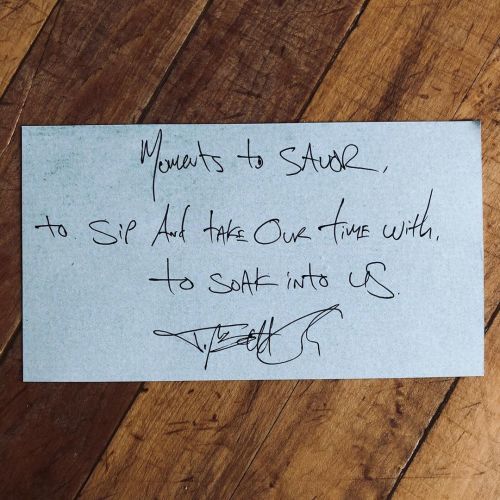 Moments to SAVOR,
to SiP And tAKE OUR time with,
to SOAK into US.